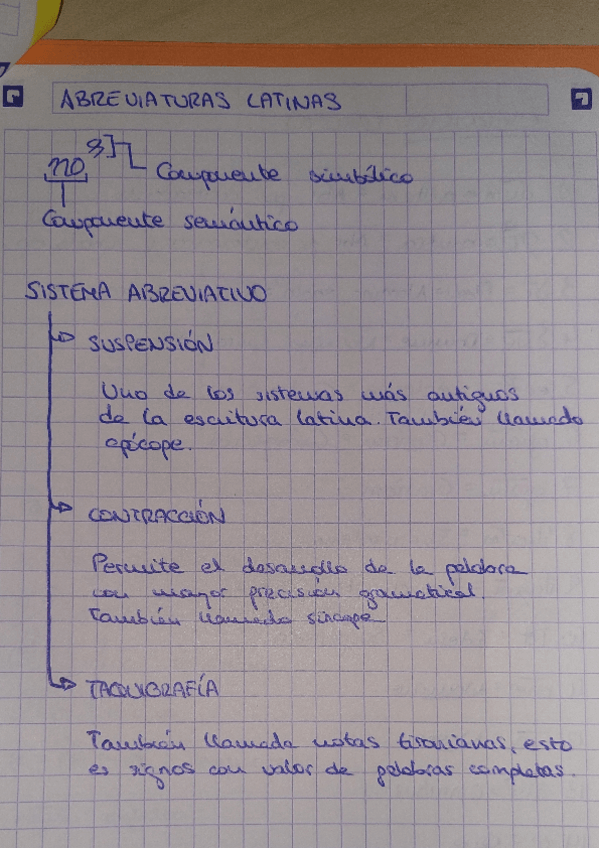 ABREVIATURAS LATINAS
no Componente simbólico
Componente semántico
SISTEMA ABREVIATIVO
SUSPENSIÓN
Uno de los sistemas más antiguos
de la escritura latina. También llamado
apócope.
CONTRACCIÓN
Permite el desarrollo de la palabra
con mayor precisión gramatical.
También llamada síncope
TAQUIGRAFÍA
También llamada notas tironianas, esto
es signos con valor de palabras completas.